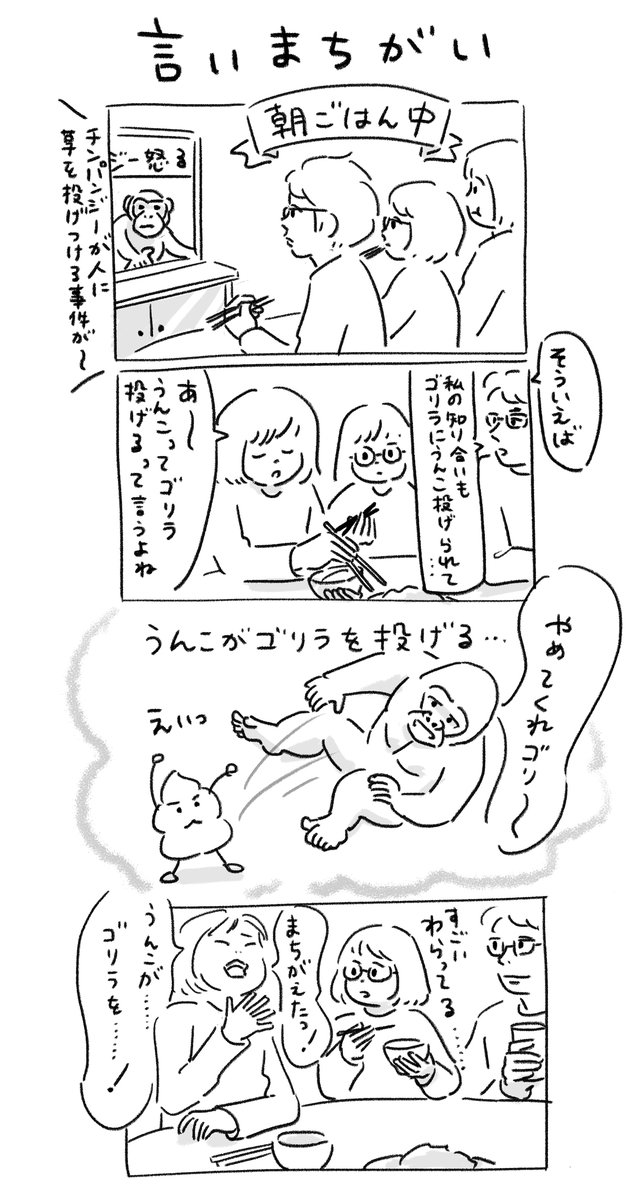 言いまちがい
朝ごはん中
ジー怒る
チンパンジーが人に
草を投げつける事件が〜
そういえば
私の知り合いも
ゴリラにうんこ投げられて…
あ〜
うんこってゴリラ
投げるって言うよね
うんこがゴリラを投げる…
やめてくれゴリ〜
えいっ
すごい
わらってる……
まちがえたっ!
うんこが……
ゴリラを……!